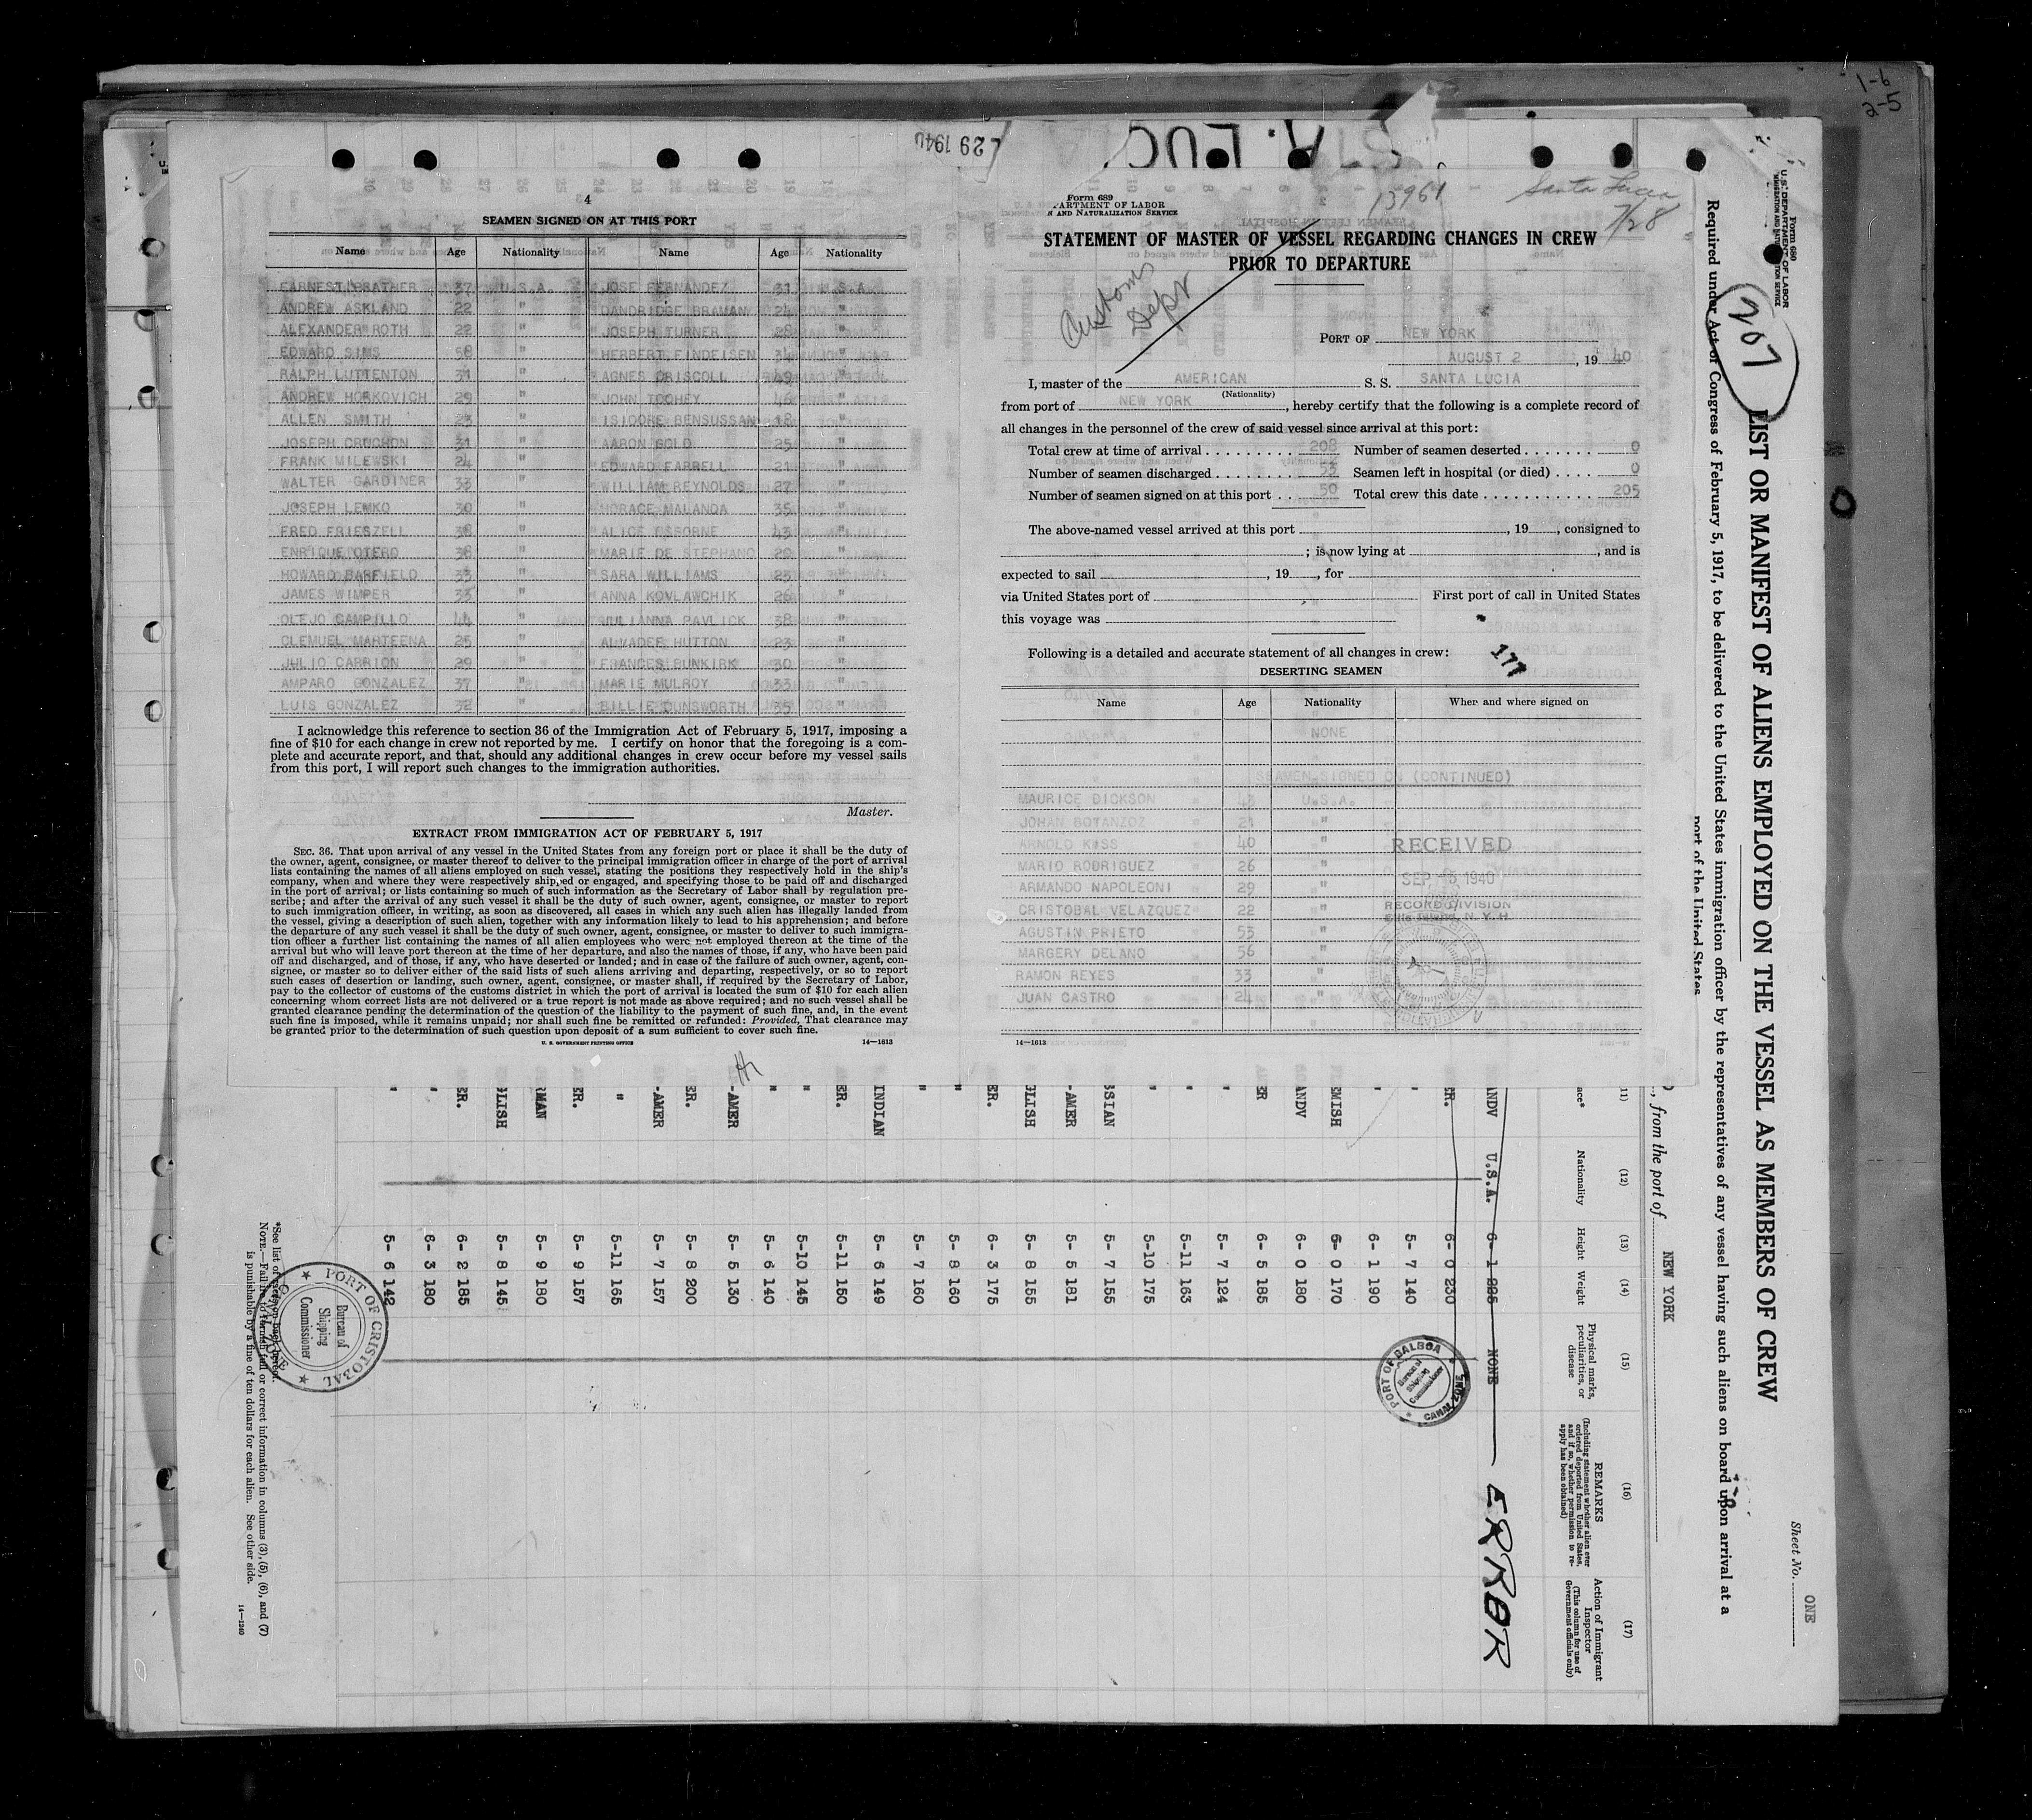 1-6
2-5
29 1940
4
SEAMEN SIGNED ON AT THIS PORT
Name Age Nationality Name Age Nationality
EARNEST PRATHER 37 U.S.A. JOSE FERNANDEZ 31 U.S.A.
ANDREW ASKLAND 22 " DANDRIDGE BRAMAN 24 "
ALEXANDER ROTH 22 " JOSEPH TURNER 28 "
EDWARD SIMS 58 " HERBERT FINDEISEN 34 "
RALPH LUTTENTON 31 " AGNES DRISCOLL 49 "
ANDREW HOSKOVICH 29 " JOHN TOOHEY "
ALLEN SMITH 23 " ISIDORE BENSUSSAN 18 "
JOSEPH CRUCHON 31 " AARON GOLD 25 "
FRANK MILEWSKI 24 " EDWARD FARRELL 21 "
WALTER GARDINER 33 " WILLIAM REYNOLDS 27 "
JOSEPH LEMKO 30 " HORACE MALANDA 35 "
FRED FRIESZELL 38 " ALICE OSBORNE 43 "
ENRIQUE OTERO 36 " MARIE DE STEPHANO 29 "
HOWARD BARFIELD 33 " SARA WILLIAMS 25 "
JAMES WIMPER 33 " ANNA KOVLAWCHIK 26 "
OLEJO CAMPILLO 44 " JULIANNA PAVLICK 38 "
CLEMUEL MARTEENA 25 " ALMADEE HUTTON 23 "
JULIO CARRION 29 " FRANCES BUNKIRK 30 "
AMPARO GONZALEZ 37 " MARIE MULROY 33 "
LUIS GONZALEZ 32 " BILLIE DUNSWORTH 35 "
I acknowledge this reference to section 36 of the Immigration Act of February 5, 1917, imposing a
fine of $10 for each change in crew not reported by me. I certify on honor that the foregoing is a com-
plete and accurate report, and that, should any additional changes in crew occur before my vessel sails
from this port, I will report such changes to the immigration authorities.
Master.
EXTRACT FROM IMMIGRATION ACT OF FEBRUARY 5, 1917
SEC. 36. That upon arrival of any vessel in the United States from any foreign port or place it shall be the duty of
the owner, agent, consignee, or master thereof to deliver to the principal immigration officer in charge of the port of arrival
lists containing the names of all aliens employed on such vessel, stating the positions they respectively hold in the ship's
company, when and where they were respectively shipped or engaged, and specifying those to be paid off and discharged
in the port of arrival; or lists containing so much of such information as the Secretary of Labor shall by regulation pre-
scribe; and after the arrival of any such vessel it shall be the duty of such owner, agent, consignee, or master to report
to such immigration officer, in writing, as soon as discovered, all cases in which any such alien has illegally landed from
the vessel, giving a description of such alien, together with any information likely to lead to his apprehension; and before
the departure of any such vessel it shall be the duty of such owner, agent, consignee, or master to deliver to such immigra-
tion officer a further list containing the names of all alien employees who were not employed thereon at the time of the
arrival but who will leave port thereon at the time of her departure, and also the names of those, if any, who have been paid
off and discharged, and of those, if any, who have deserted or landed; and in case of the failure of such owner, agent, con-
signee, or master so to deliver either of the said lists of such aliens arriving and departing, respectively, or so to report
such cases of desertion or landing, such owner, agent, consignee, or master shall, if required by the Secretary of Labor,
pay to the collector of customs of the customs district in which the port of arrival is located the sum of $10 for each alien
concerning whom correct lists are not delivered or a true report is not made as above required; and no such vessel shall be
granted clearance pending the determination of the question of the liability to the payment of such fine, and, in the event
such fine is imposed, while it remains unpaid; nor shall such fine be remitted or refunded: Provided, That clearance may
be granted prior to the determination of such question upon deposit of a sum sufficient to cover such fine.
U. S. GOVERNMENT PRINTING OFFICE 14—1613
Form 689
ARTMENT OF LABOR
AND NATURALIZATION SERVICE
13961
Santa Lucia
7/28
STATEMENT OF MASTER OF VESSEL REGARDING CHANGES IN CREW
PRIOR TO DEPARTURE
Customs
Dept
PORT OF NEW YORK
AUGUST 2, 1940
I, master of the AMERICAN S. S. SANTA LUCIA
(Nationality)
from port of NEW YORK, hereby certify that the following is a complete record of
all changes in the personnel of the crew of said vessel since arrival at this port:
Total crew at time of arrival 208 Number of seamen deserted 0
Number of seamen discharged 53 Seamen left in hospital (or died) 0
Number of seamen signed on at this port 50 Total crew this date 205
The above-named vessel arrived at this port , 19 , consigned to
; is now lying at , and is
expected to sail , 19 , for
via United States port of First port of call in United States
this voyage was
Following is a detailed and accurate statement of all changes in crew:
177
DESERTING SEAMEN
Name Age Nationality When and where signed on
NONE
SEAMEN SIGNED ON (CONTINUED)
MAURICE DICKSON 43 U.S.A.
JOHAN BOTANZOZ 21 "
ARNOLD KUSS 40 "
MARIO RODRIGUEZ 26 "
ARMANDO NAPOLEONI 29 "
CRISTOBAL VELAZQUEZ 22 "
AGUSTIN PRIETO 53 "
MARGERY DELANO 56 "
RAMON REYES 33 "
JUAN CASTRO 24 "
RECEIVED
SEP 1940
RECORD DIVISION
Ellis Island, N. Y. H
14—1613
Form 689
U. S. DEPARTMENT OF LABOR
IMMIGRATION AND NATURALIZATION SERVICE
207
Sheet No. ONE
LIST OR MANIFEST OF ALIENS EMPLOYED ON THE VESSEL AS MEMBERS OF CREW
Required under Act of Congress of February 5, 1917, to be delivered to the United States immigration officer by the representatives of any vessel having such aliens on board upon arrival at a
port of the United States
, from the port of NEW YORK
(11) (12) (13) (14) (15) (16) (17)
ace* Nationality Height Weight Physical marks, peculiarities, or disease
REMARKS
(Including statement whether alien ever ordered deported from United States, and if so, whether permission to re-apply has been obtained)
Action of Immigrant Inspector
(This column for use of Government officials only)
ANDV U.S.A. 6- 1 225 NONE ERROR
ER. 6- 0 230
" 5- 7 140
" 6- 1 190
EMISH 6- 0 170
ANDV 6- 0 180
ER 6- 5 185
" 5- 7 124
" 5-11 163
" 5-10 175
SSIAN 5- 7 155
-AMER 5- 5 181
GLISH 5- 8 155
ER. 6- 3 175
" 5- 8 160
" 5- 7 160
INDIAN 5- 6 149
ER. 5-11 150
" 5-10 145
" 5- 6 140
-AMER 5- 5 130
ER. 5- 8 200
-AMER 5- 7 157
" 5-11 165
ER. 5- 9 157
RMAN 5- 9 180
GLISH 5- 8 145
ER. 6- 2 185
" 6- 3 180
" 5- 6 142
PORT OF BALBOA
Bureau of
Shipping
Commissioner
CANAL ZONE
PORT OF CRISTOBAL
Bureau of
Shipping
Commissioner
CANAL ZONE
*See list of races on back hereof.
NOTE.—Failure to furnish full or correct information in columns (3), (5), (6), and (7)
is punishable by a fine of ten dollars for each alien. See other side.
14—1240